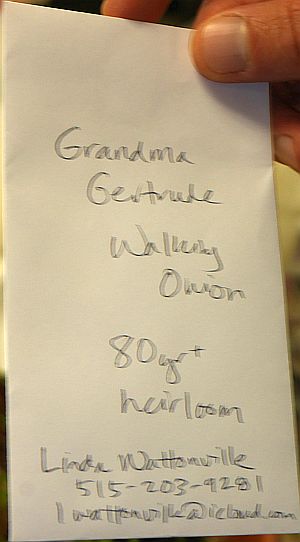 Grandma
Gertrude
Walking
Onion
80yr+
heirloom
Linda Wattonville
515-203-9281
lwattonville@icloud.com